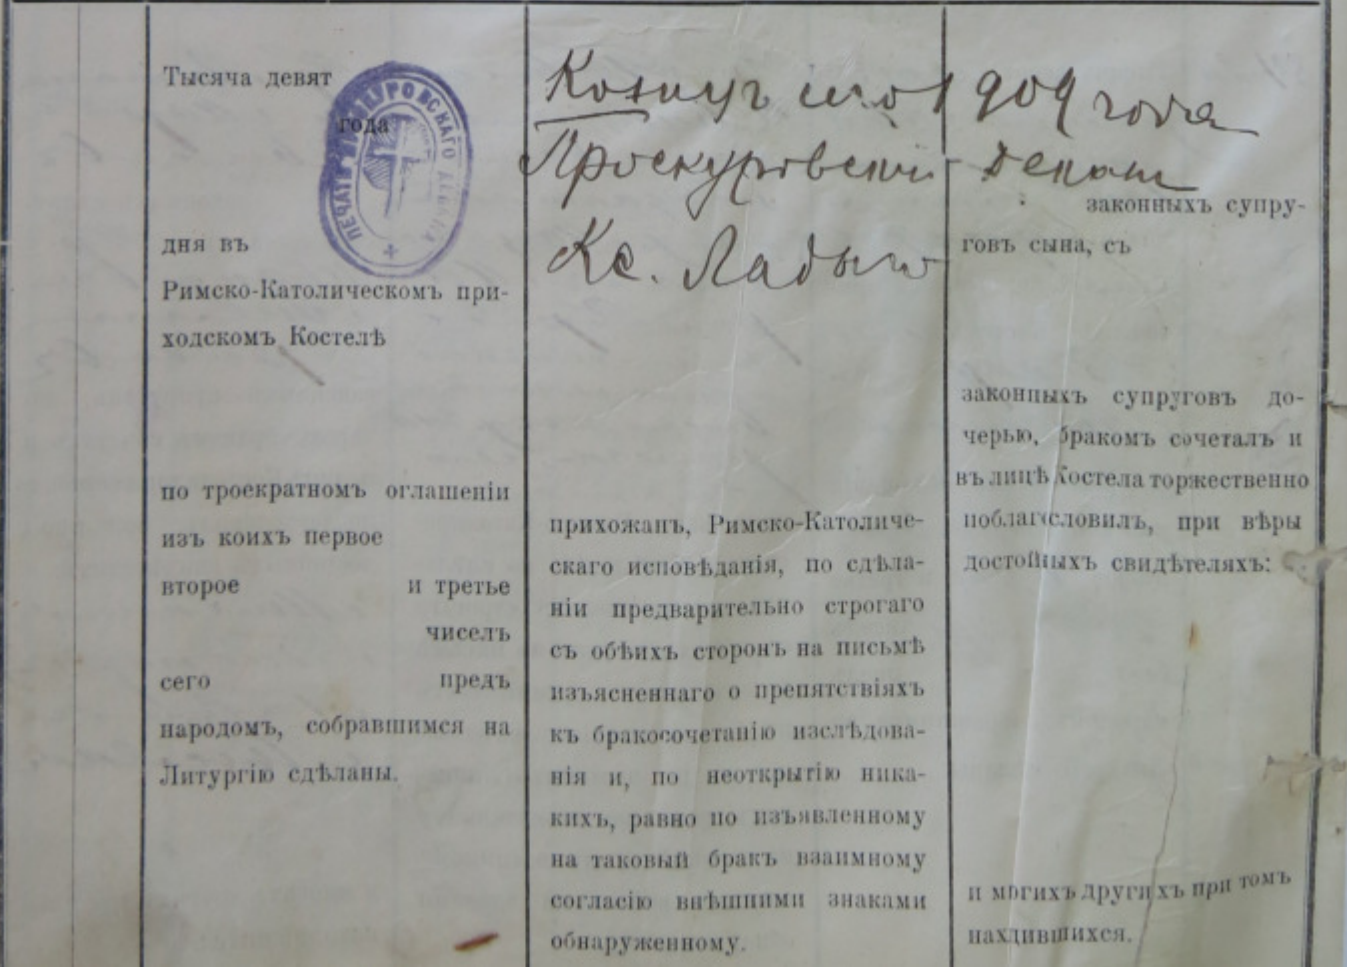 Тысяча девят
года
ПЕЧАТЬ ПРОСКУРОВСКАГО ДЕКАНА
дня въ
Римско-Католическомъ при-
ходскомъ Костелѣ
по троекратномъ оглашеніи
изъ коихъ первое
второе и третье
чиселъ
сего предъ
народомъ, собравшимся на
Литургію сдѣланы.
909 года
Проскуровскій Декан
Кс.
прихожанъ, Римско-Католиче-
скаго исповѣданія, по сдѣла-
ніи предварительно строгаго
съ обѣихъ сторонъ на письмѣ
изъясненнаго о препятствіяхъ
къ бракосочетанію изслѣдова-
нія и, по неоткрытію ника-
кихъ, равно по изъявленному
на таковый бракъ взаимному
согласію внѣшними знаками
обнаруженному.
законныхъ супру-
говъ сына, съ
законныхъ супруговъ до-
черью, бракомъ сочеталъ и
въ лицѣ Костела торжественно
поблагословилъ, при вѣры
достойныхъ свидѣтеляхъ:
и могихъ другихъ при томъ
нахдившихся.